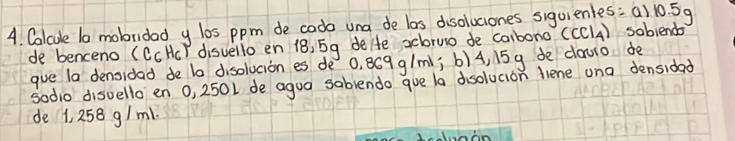 4. Calcule la molaridad y los ppm de cada una de las disoluciones siguientes: a) 10.5g
de benceno (C6H6) disuelto en 18,5g de tetracloruro de carbono (CCl4) sabiendo
que la densidad de la disolución es de 0,869 g/ml; b) 4,15g de cloruro de
sodio disuelto en 0,250L de agua sabiendo que la disolución tiene una densidad
de 1,258 g/ml.